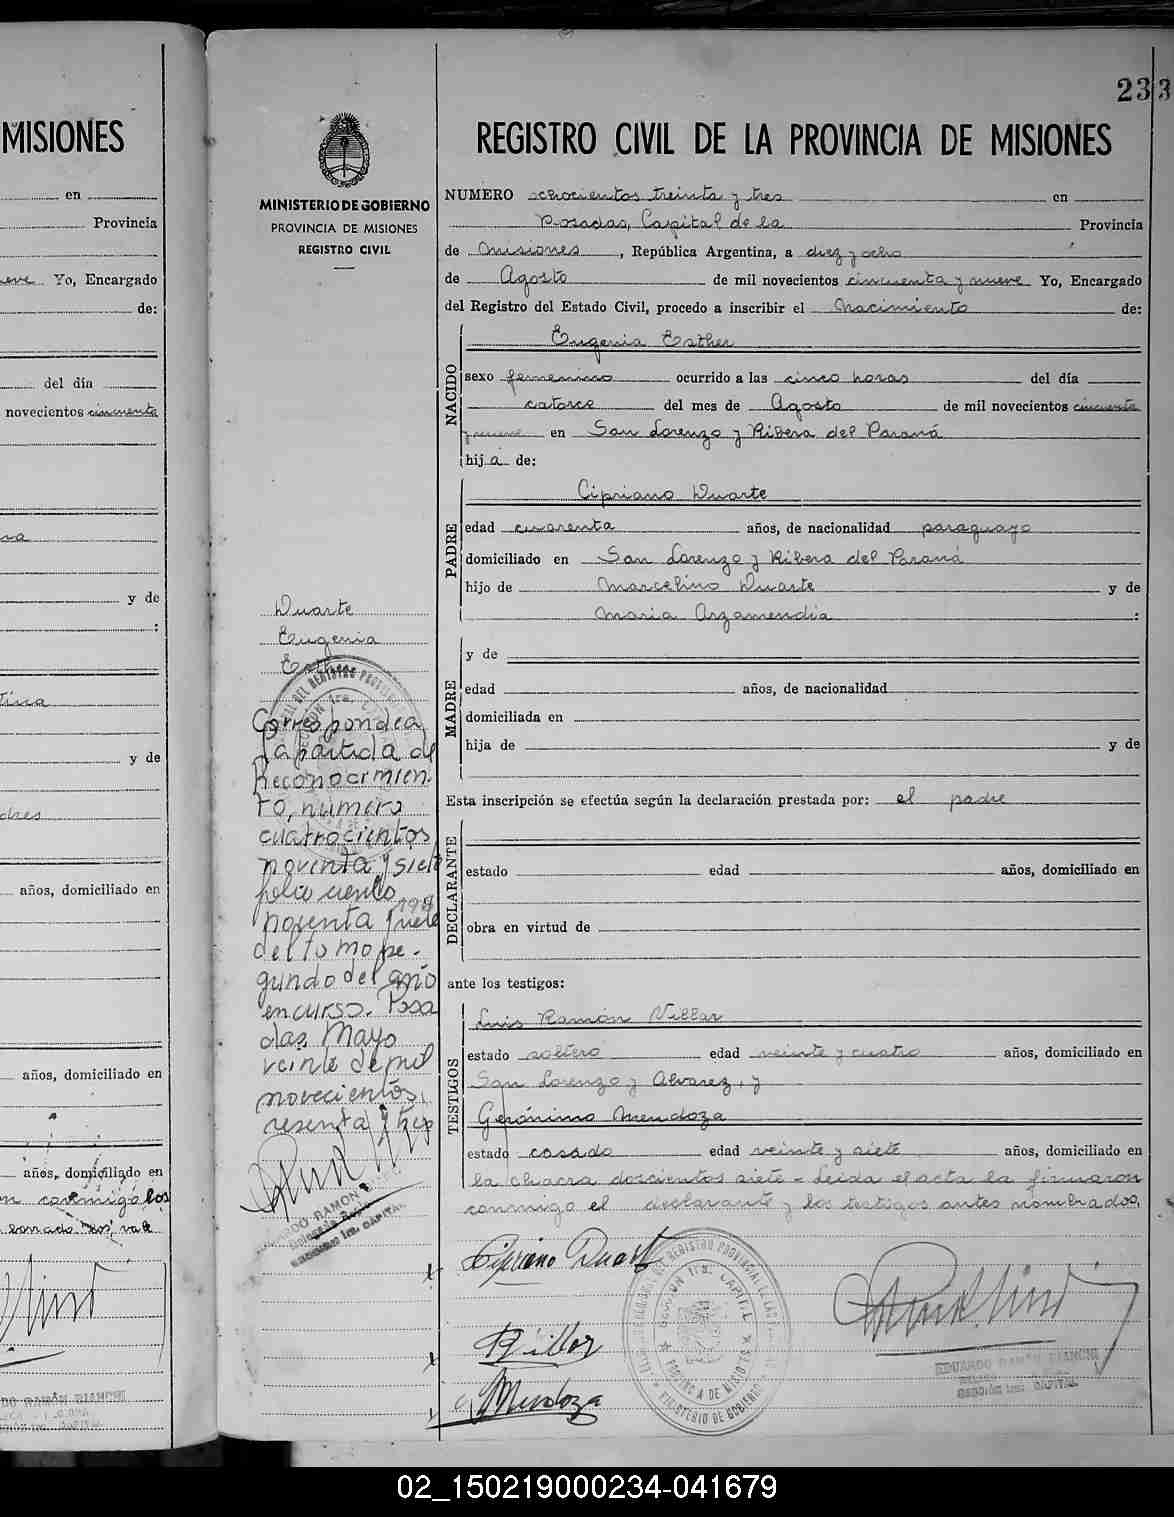 MISIONES
en
Provincia
Yo, Encargado
de:
del día
novecientos cincuenta
y de
:
y de
años, domiciliado en
años, domiciliado en
años, domiciliado en
conmigo los
borrado "los", vale
233
MINISTERIO DE GOBIERNO
PROVINCIA DE MISIONES
REGISTRO CIVIL
Duarte
Eugenia
Esther
Corresponde a
la partida de
Reconocimien
to, número
cuatrocientos
noventa y siete
folio ciento
noventa y siete
del tomo se-
gundo del año
en curso. Posa
das Mayo
veinte de mil
novecientos
sesenta y tres
REGISTRO CIVIL DE LA PROVINCIA DE MISIONES
NUMERO ochocientos treinta y tres en
Posadas, Capital de la Provincia
de Misiones, República Argentina, a diez y ocho
de Agosto de mil novecientos cincuenta y nueve Yo, Encargado
del Registro del Estado Civil, procedo a inscribir el Nacimiento de:
NACIDO
Eugenia Esther
sexo femenino ocurrido a las cinco horas del día
catorce del mes de Agosto de mil novecientos cincuenta
y nueve en San Lorenzo y Ribera del Paraná
hija de:
PADRE
Cipriano Duarte
edad cuarenta años, de nacionalidad paraguayo
domiciliado en San Lorenzo y Ribera del Paraná
hijo de Marcelino Duarte y de
Maria Arzamendia :
MADRE
y de
edad años, de nacionalidad
domiciliada en
hija de y de
Esta inscripción se efectúa según la declaración prestada por: el padre
DECLARANTE
estado edad años, domiciliado en
obra en virtud de
ante los testigos:
TESTIGOS
Luis Ramón Villar
estado soltero edad veinte y cuatro años, domiciliado en
San Lorenzo y Alvarez, y
Gerónimo Mendoza
estado casado edad veinte y siete años, domiciliado en
la chacra doscientos siete - Leida el acta la firmaron
conmigo el declarante y los testigos antes nombrados,
Cipriano Duarte
RVillar
Mendoza
EDUARDO RAMÓN BIANCHI
SECCIÓN 1ra. CAPITAL
02_150219000234-041679